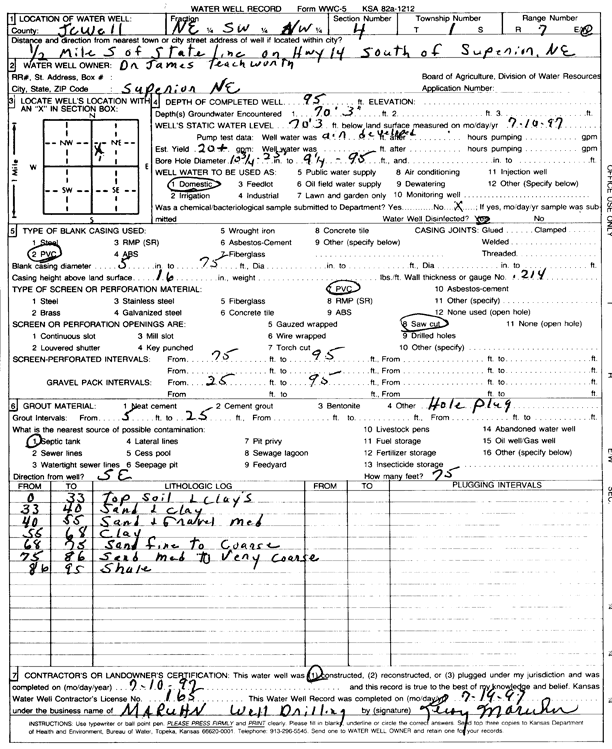 WATER WELL RECORD Form WWC-5 KSA 82a-1212
1 LOCATION OF WATER WELL: Fraction Section Number Township Number Range Number
County: Jewell NE ¼ SW ¼ NW ¼ 4 T 1 S R 7 E/W
Distance and direction from nearest town or city street address of well if located within city?
1/2 Mile S of State Line on Hwy 14 South of Superior, NE
2 WATER WELL OWNER: Dr James Teachworth
RR#, St. Address, Box # : Board of Agriculture, Division of Water Resources
City, State, ZIP Code : Superior NE Application Number:
3 LOCATE WELL'S LOCATION WITH AN "X" IN SECTION BOX:
N
NW NE
W E
SW SE
S
1 Mile
X
4 DEPTH OF COMPLETED WELL 95 ft. ELEVATION:
Depth(s) Groundwater Encountered 1. 70'3" ft. 2. ft. 3. ft.
WELL'S STATIC WATER LEVEL 70'3 ft. below land surface measured on mo/day/yr 7-10-97
Pump test data: Well water was air developed ft. after hours pumping gpm
Est. Yield 20+ gpm: Well water was ft. after hours pumping gpm
Bore Hole Diameter in. to 9 1/4 - 95 ft., and in. to ft.
WELL WATER TO BE USED AS: 5 Public water supply 8 Air conditioning 11 Injection well
1 Domestic 3 Feedlot 6 Oil field water supply 9 Dewatering 12 Other (Specify below)
2 Irrigation 4 Industrial 7 Lawn and garden only 10 Monitoring well
Was a chemical/bacteriological sample submitted to Department? Yes No X; If yes, mo/day/yr sample was submitted
Water Well Disinfected? Yes No
5 TYPE OF BLANK CASING USED: 5 Wrought iron 8 Concrete tile CASING JOINTS: Glued Clamped
1 Steel 3 RMP (SR) 6 Asbestos-Cement 9 Other (specify below) Welded
2 PVC 4 ABS 7 Fiberglass Threaded
Blank casing diameter 5 in. to 75 ft., Dia in. to ft., Dia in. to ft.
Casing height above land surface 16 in., weight lbs./ft. Wall thickness or gauge No. .214
TYPE OF SCREEN OR PERFORATION MATERIAL: 7 PVC 10 Asbestos-cement
1 Steel 3 Stainless steel 5 Fiberglass 8 RMP (SR) 11 Other (specify)
2 Brass 4 Galvanized steel 6 Concrete tile 9 ABS 12 None used (open hole)
SCREEN OR PERFORATION OPENINGS ARE: 5 Gauzed wrapped 8 Saw cut 11 None (open hole)
1 Continuous slot 3 Mill slot 6 Wire wrapped 9 Drilled holes
2 Louvered shutter 4 Key punched 7 Torch cut 10 Other (specify)
SCREEN-PERFORATED INTERVALS: From 75 ft. to 95 ft., From ft. to ft.
From ft. to ft., From ft. to ft.
GRAVEL PACK INTERVALS: From 25 ft. to 95 ft., From ft. to ft.
From ft. to ft., From ft. to ft.
6 GROUT MATERIAL: 1 Neat cement 2 Cement grout 3 Bentonite 4 Other Hole Plug
Grout Intervals: From 5 ft. to 25 ft., From ft. to ft., From ft. to ft.
What is the nearest source of possible contamination: 10 Livestock pens 14 Abandoned water well
1 Septic tank 4 Lateral lines 7 Pit privy 11 Fuel storage 15 Oil well/Gas well
2 Sewer lines 5 Cess pool 8 Sewage lagoon 12 Fertilizer storage 16 Other (specify below)
3 Watertight sewer lines 6 Seepage pit 9 Feedyard 13 Insecticide storage
Direction from well? SE How many feet? 75
FROM TO LITHOLOGIC LOG FROM TO PLUGGING INTERVALS
0 33 Top Soil & Clay's
33 40 Sand & Clay
40 55 Sand & Gravel med
55 68 Clay
68 75 Sand fine to Coarse
75 86 Sand med to Very Coarse
86 95 Shale
7 CONTRACTOR'S OR LANDOWNER'S CERTIFICATION: This water well was (1) constructed, (2) reconstructed, or (3) plugged under my jurisdiction and was
completed on (mo/day/year) 7-10-97 and this record is true to the best of my knowledge and belief. Kansas
Water Well Contractor's License No. 165 This Water Well Record was completed on (mo/day/yr) 7-19-97
under the business name of MARUHN Well Drilling by (signature) Maruhn
INSTRUCTIONS: Use typewriter or ball point pen. PLEASE PRESS FIRMLY and PRINT clearly. Please fill in blanks, underline or circle the correct answers. Send top three copies to Kansas Department
of Health and Environment, Bureau of Water, Topeka, Kansas 66620-0001. Telephone: 913-296-5545. Send one to WATER WELL OWNER and retain one for your records.
OFFICE USE ONLY
T
R
E/W
SEC